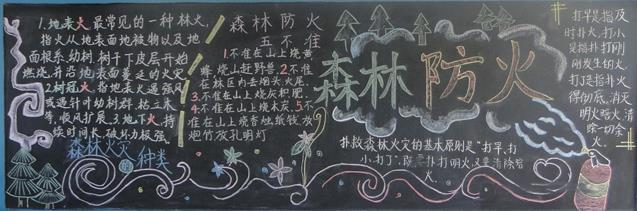 1.地表火,最常见的一种林火,
指火从地表面地被物以及地
面根系.幼树.树干下皮层开始
燃烧,并沿地表面蔓延的火灾
2.树冠火,指地表火遇强风
或遇针叶幼树群.枯立木
等,顺风扩展.3.地下火,持
续时间长.破坏力极强.
森林火灾的种类
森林防火
五不准
1.不准在山上烧黄
蜂.烧山赶野兽.2.不准
在林区内丢烟头火尾.
3.不准在山上烧灰积肥.
4.不准在山上烧木炭.5.不
准在山上烧香地纸钱,放
炮竹放孔明灯
森林防火
扑救森林火灾的基本原则是"打早.打
小.打了".既要扑打明火,又要清除暗
火
打早是指及
时扑火,打小
是指扑打刚
刚发生的火.
打了是指扑火
得彻底.消灭
明火暗火清
除一切余
火.